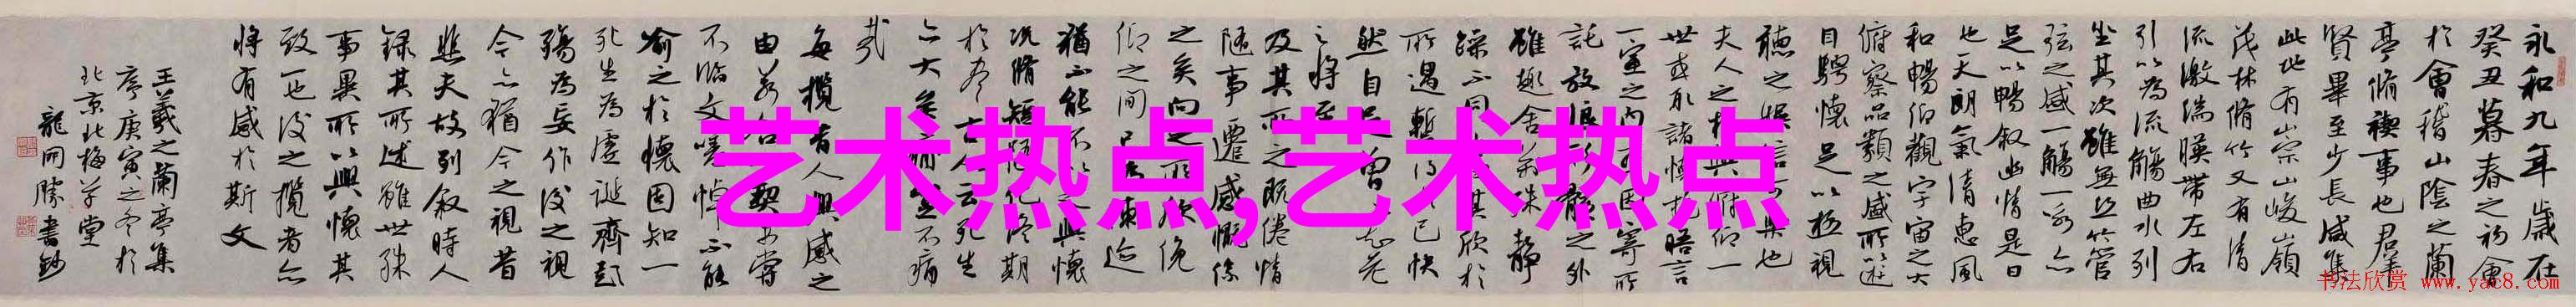 永和九年歲在
癸丑暮春之初會
於會稽山陰之蘭
亭脩禊事也羣
賢畢至少長咸集
此地有崇山峻嶺
茂林脩竹又有清
流激湍暎帶左右
引以為流觴曲水列
坐其次雖無絲竹管
弦之盛一觴一詠亦
足以暢叙幽情是日
也天朗氣清惠風
和暢仰觀宇宙之大
俯察品類之盛所以遊
目騁懷足以極視
聽之娛信可樂也
夫人之相與俯仰一
世或取諸懷抱晤言
一室之內因寄所
託放浪形骸之外
雖趣舍萬殊靜
躁不同其欣於
所遇暫得己快
然自足曾老
之將至
及其所之既倦情
隨事遷感慨係
之矣向之所欣俛
仰之間已為陳迹
猶不能不以之興懷
況脩短隨化終期
於盡古人云死生
亦大矣豈不痛
哉
每攬昔人興感之
由若合契未嘗
不臨文嗟悼不能
喻之於懷固知一
死生為虛誕齊彭
殤為妄作後之視
今亦猶今之視昔
悲夫故列叙時人
錄其所述雖世殊
事異所以興懷其
致一也後之攬者亦
將有感於斯文
王羲之蘭亭集
序庚寅之冬於
北京北梅草堂
龍開勝書鈔
艺术热点,艺术热点
书法欣赏 www.yac8.com